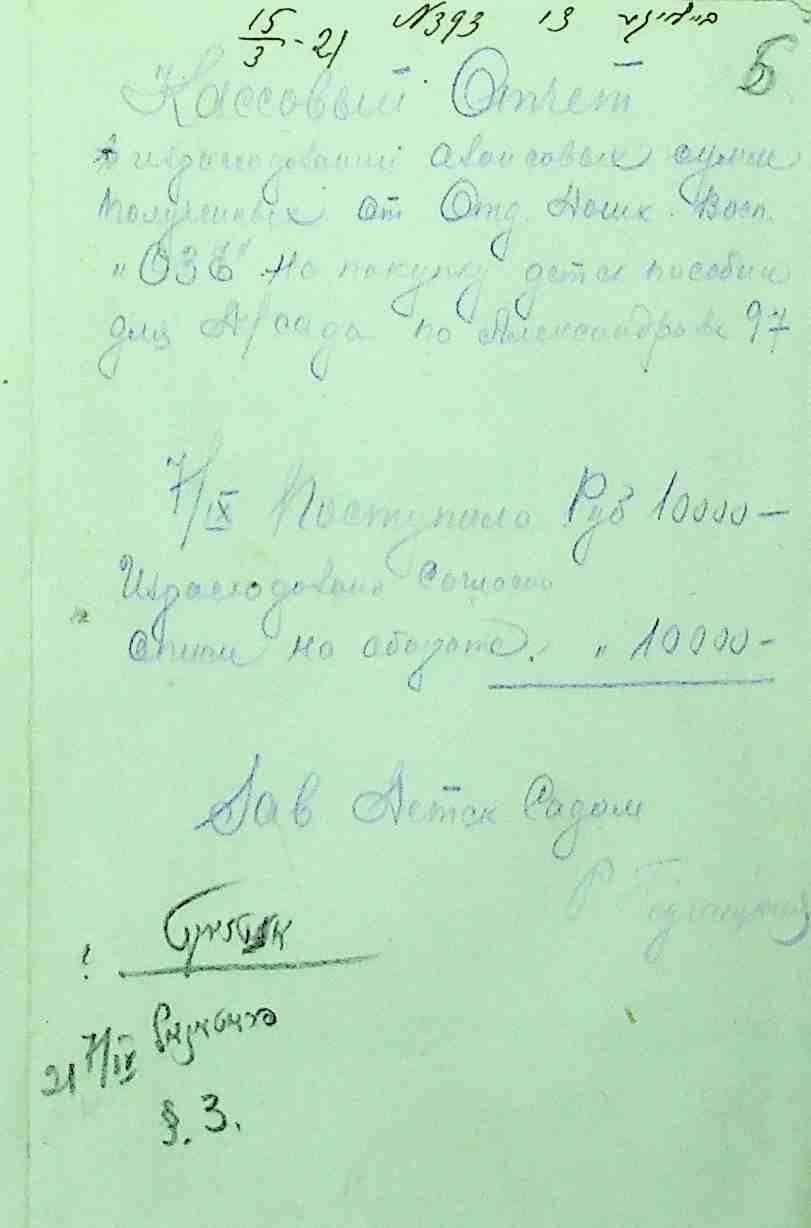 15/3 - 21 N393 13
5
Кассовый Отчет
в израсходовании авансовых сумм
полученных от Отд. Дошк. Восп.
"ОЗЕ" на покупку детск пособий
для Д/сада по Александровск 97
7/IX Поступило Руб 10000 —
Израсходовано согласно
описи на обороте. " 10000 -
Зав Детск Садом
Р
!
21 7/IV
§. 3.